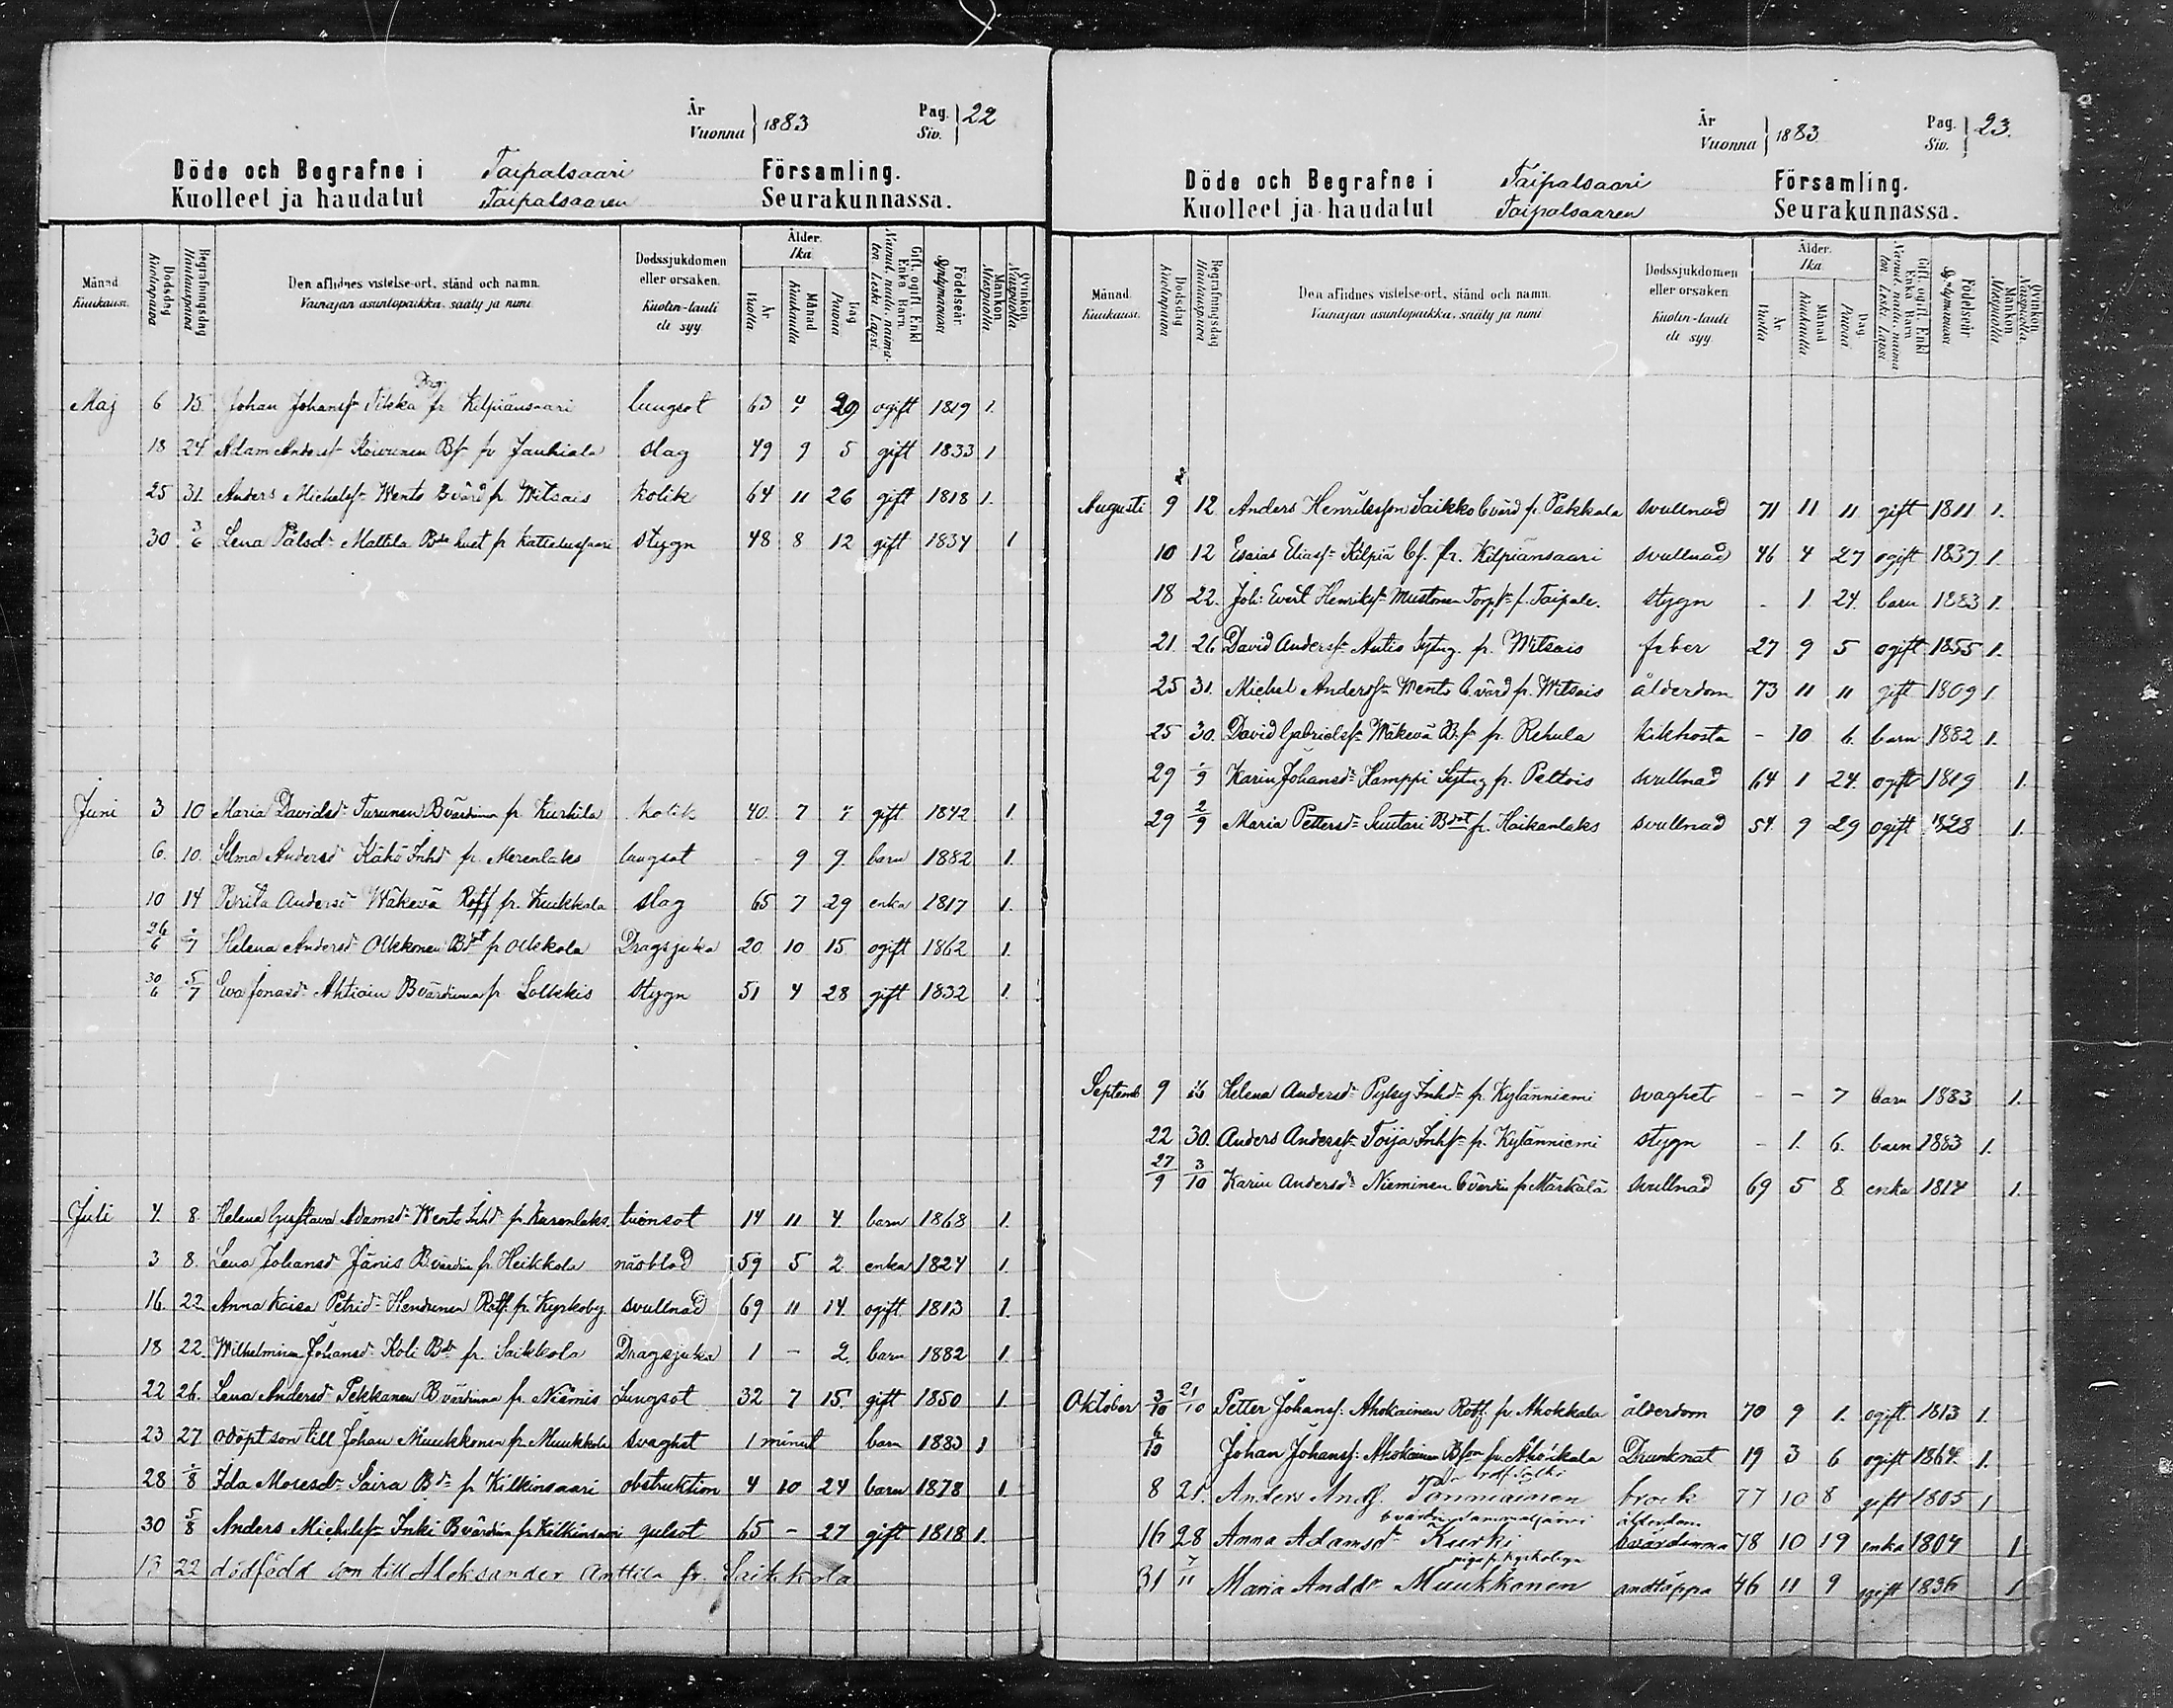 År
Vuonna } 1883
Pag.
Siv. } 22
Döde och Begrafne i Taipalsaari Församling.
Kuolleet ja haudatut Taipalsaaren Seurakunnassa.
Månad Kuukausi.
Dödsdag Kuolinpäivä
Begrafningsdag Hautauspäivä
Den aflidnes vistelse-ort, stånd och namn.
Vainajan asuntopaikka, sääty ja nimi
Dödssjukdomen eller orsaken.
Kuolin-tauti eli syy.
Ålder. Ikä.
År Vuotta
Månad Kuukautta
Dag Päivää
Gift, ogift, Enkl. Enka Barn.
Nainut, naitu, naimaton Leski. Lapsi.
Födelseår. Syntymävuosi
Mankön. Miespuolia
Qvinkön. Naispuolia.
Maj 6 13 Johan Johansf Pikka fr Kilpiänsaari lungsot 63 4 29 ogift 1819 1.
18 24 Adam Andersf Koivunen Bf fr Jauhiala slag 49 9 5 gift 1833 1
25 31. Anders Michelsf Wento Bvärd fr Witsais kolik 64 11 26 gift 1818 1.
30 3/6 Lena Pålsd Mattila Bde hust fr Kattelussaari stygn 48 8 12 gift 1834 1
Juni 3 10 Maria Davidsd Turunen Bvärdinna fr Kurkila kolik 40. 7 7 gift 1842 1.
6. 10. Selma Andersd Kähö Inhd fr. Merenlaks lungsot - 9 9. barn 1882 1.
10 14 Brita Andersd Wäkevä Rotf fr. Kuukkala slag 65 7 29 enka 1817 1.
26/6 /7 Helena Andersd Olkkonen Bdot fr Olkkola Dragsjuka 20 10 15 ogift 1862 1.
30/6 5/7 Eva Jonasd Ahtiain Bvärdinna fr Solkkis stygn 51 4 28 gift 1832 1.
Juli 4. 8. Helena Gustava Adamsd Wento Inhd fr Karenlaks. tvinsot 14 11 4. barn 1868 1.
3 8. Lena Johansd Jänis Bvärdin fr. Heikkola näsblod 59 5 2 enka 1824 1.
16. 22. Anna Kaisa Petrid Hendunen Rotf. fr. Kyrkoby. svullnad 69 11 14. ogift 1813 1.
18 22. Wilhelmina Johansd Koli Bdr fr. Saikkola Dragsjuka 1 - 2. barn 1882 1.
22 26. Lena Andersd Pekkanen Bvärdinna fr. Niemis Lungsot 32 7 15. gift 1850 1.
23 27 odöpt son till Johan Muukkonen fr. Muukkola svaghet 1 minut barn 1883 1
28 /8 Ida Mosesd Saira Bdr fr Kilkinsaari obstruktion 4 10 24 barn 1878 1.
30 5/8 Anders Michelsf Inki Bvärdin fr Kilkinsaari gulsot 65 - 27 gift 1818 1.
13 22 dödfödd son till Aleksander Anttila fr. Saikkola
År
Vuonna } 1883
Pag.
Siv. } 23.
Döde och Begrafne i Taipalsaari Församling.
Kuolleet ja haudatut Taipalsaaren Seurakunnassa.
Månad. Kuukausi.
Dödsdag Kuolinpäivä
Begrafningsdag Hautauspäivä
Den aflidnes vistelse-ort, stånd och namn.
Vainajan asuntopaikka, sääty ja nimi
Dödssjukdomen eller orsaken.
Kuolin-tauti eli syy.
Ålder. Ikä.
År Vuotta
Månad Kuukautta
Dag Päivää
Gift, ogift, Enkl. Enka Barn
Nainut, naitu, naimaton Leski. Lapsi.
Födelseår. Syntymävuosi
Mankön Miespuolia
Qvinkön. Naispuolia
Augusti 9 12. Anders Henriksson Saikko Bvärd fr. Pakkala svullnad 71 11 11 gift 1811 1.
10 12 Esaias Eliasf Kilpiä Bf. fr. Kilpiänsaari svullnad 46 4 27 ogift 1837. 1.
18 22. Joh: Evert Henriksf Mustonen Torpf f. Taipale. stygn - 1. 24. barn 1883 1.
21. 26 David Andersf Autio Sytng. fr. Witsais feber 27 9 5 ogift 1855 1.
25 31. Michel Andersf Wento Bvärd fr. Witsais ålderdom 73 11 11 gift 1809 1.
25 30. David Gabrielsf Wäkevä Bf fr. Rehula kikhosta - 10 6. barn 1882 1.
29 1/9 Karin Johansd Kamppi Sytng fr. Peltois svullnad 64 1 24. ogift 1819 1.
29 2/9 Maria Pettersd Suutari Bdot fr. Haikanlaks svullnad 54. 9 29 ogift 1828 1.
Septemb 9 16 Helena Andersd Pylsy Inhd fr. Kylänniemi svaghet - - 7 barn 1883 1.
22 30. Anders Andersf Toija Inhf fr. Kylänniemi stygn - 1. 6. barn 1883 1.
27/9 3/10 Karin Andersd Nieminen Bvärdin fr Märkälä svullnad 69 5 8 enka 1814 1.
Oktober 3/10 21/10 Petter Johansf. Ahokainen Rotf. fr Ahokkala ålderdom 70 9 1. ogift 1813 1.
6/10 Johan Johansf: Ahokainen Bson fr. Ahokkala Drunknat 19 3 6 ogift 1864. 1.
8 21. Anders Andf. Tanniainen brock 77 10 8 gift 1805 1
ålderdom
16 28 Anna Adamsd Kurki bvärdinna 78 10 19 enka 1804 1
piga fr. Kyrkobyn
31 7/11 Maria Andd Muukkonen andtäppa 46 11 9 ogift 1836 1